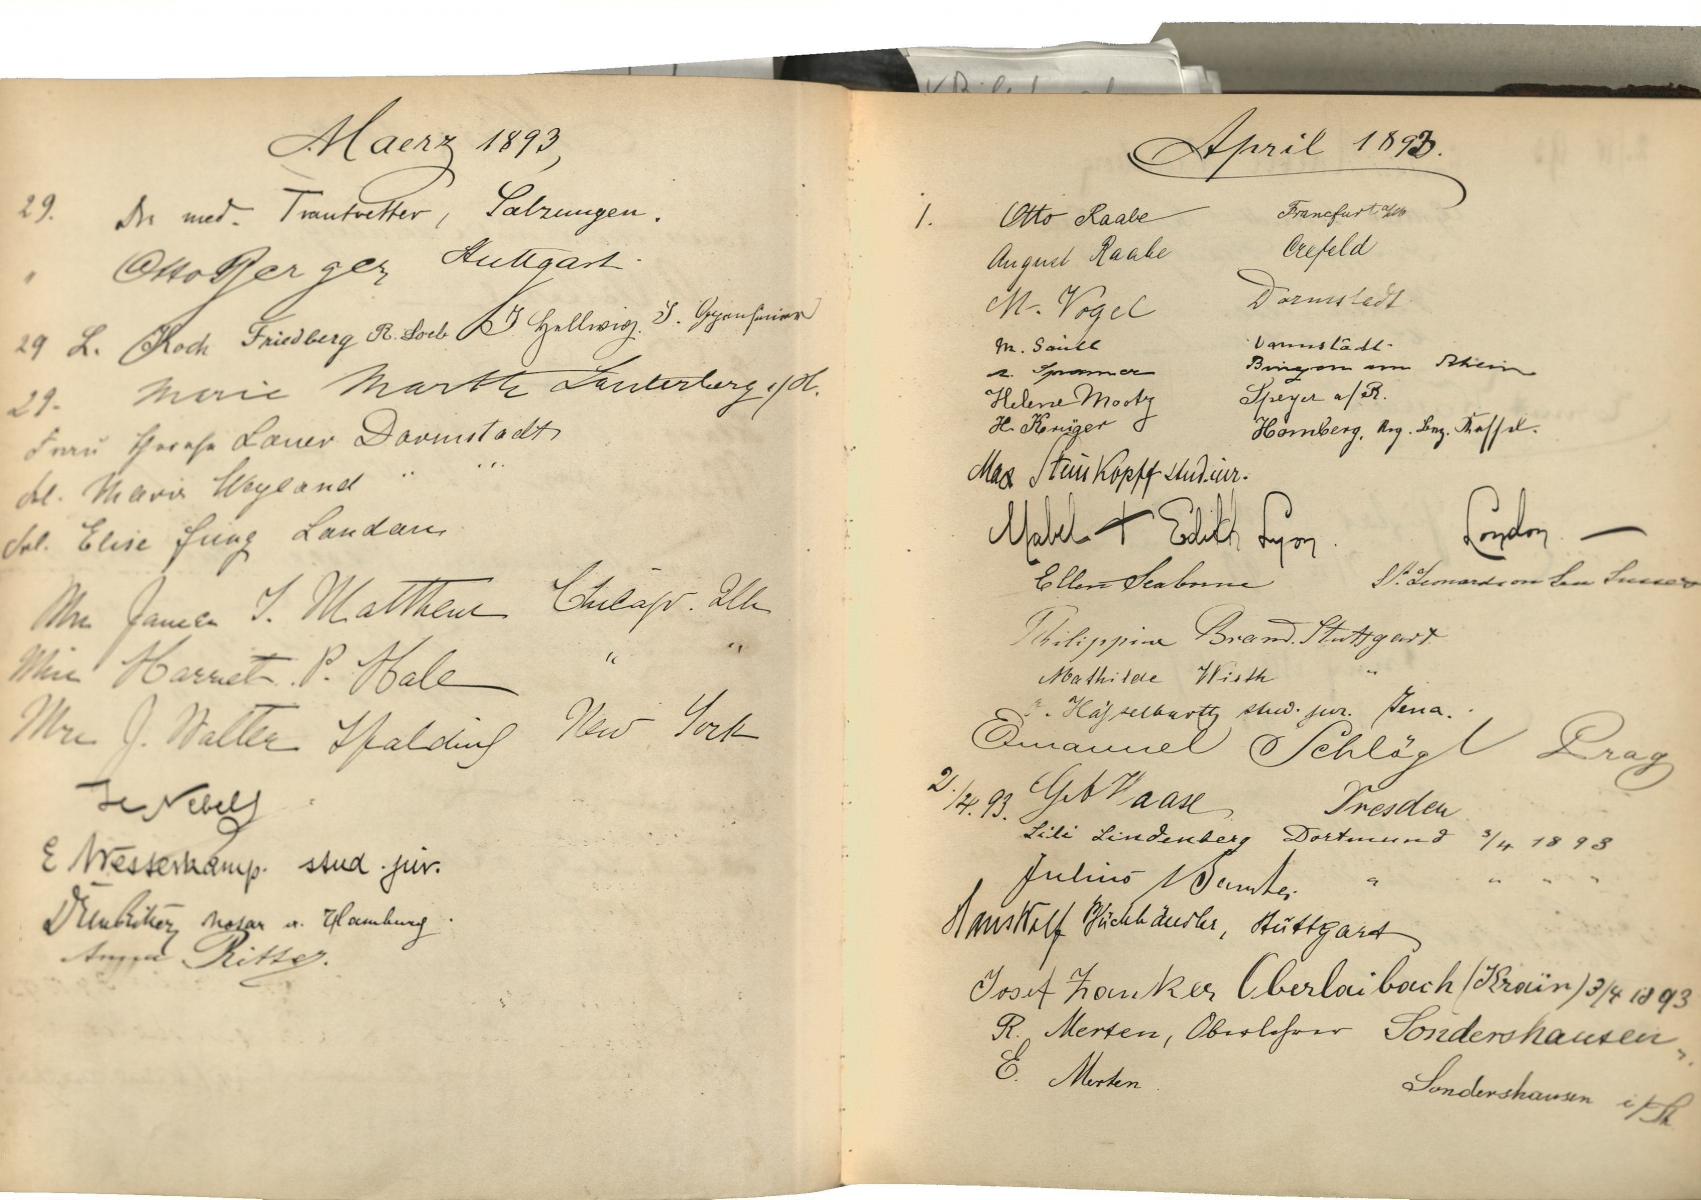 Maerz 1893,
29. Dr. med. Trautvetter, Salzungen.
" Otto Berger Stuttgart
29 L. Koch Friedberg R. Loeb J Hellwig. J.
29. Marie Marth Lauterberg a/H.
Frau Lauer Darmstadt
frl. Marie Weyland " "
frl. Elise Jung Landau
Mrs James T. Matthews Chicago. Ills
Miss Harriet P. Hale " "
Mrs J. Walter Spalding New York
E Westerkamp. stud. jur.
Notar a. Hamburg.
Anna Ritter.
April 1893.
1. Otto Raabe Francfurt a/M
August Raabe Crefeld
M. Vogel Darmstadt
M. Darmstadt
Bingen am Rhein
Helene Speyer a/R.
H. Krüger Homberg, Kassel.
Max Steinkopff stud. iur.
Mabel + Edith Lyon. London —
Ellen Seaborne St. Leonards on Sea Sussex
Philippine Brand. Stuttgart
Mathilde Wirth "
stud. jur. Jena.
Emanuel Schlögl Prag
2./4. 93. Haase Dresden
Lili Lindenberg Dortmund 3/4 1893
Julius " " " "
Hans Wolf Buchhändler, Stuttgart
Josef Oberlaibach (Krain) 3/4 1893
R. Merten, Oberlehrer Sondershausen "
E. Merten Sondershausen i/Th